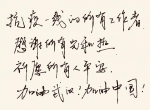 抗疫一线的所有工作者
感谢所有光和热
祈愿所有人平安
加油武汉!加油中国!